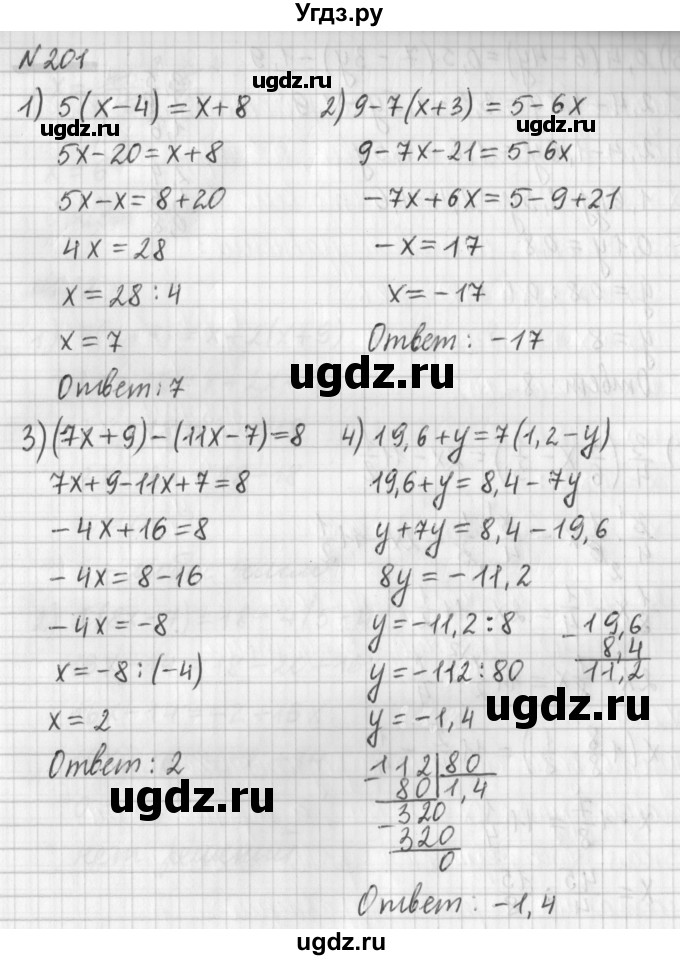 Угдз.ру
N 201
ugdz.ru
ugdz.ru
ugdz.ru
1) 5(x-4) = x+8
5x-20 = x+8
5x-x = 8+20
4x = 28
x = 28 : 4
x = 7
Ответ: 7
2) 9-7(x+3) = 5-6x
9-7x-21 = 5-6x
-7x+6x = 5-9+21
-x = 17
x = -17
Ответ: -17
ugdz.ru
3) (7x+9)-(11x-7)=8
7x+9-11x+7=8
-4x+16=8
-4x = 8-16
-4x = -8
x = -8 : (-4)
x = 2
Ответ: 2
4) 19,6+y=7(1,2-y)
19,6+y = 8,4-7y
y+7y = 8,4-19,6
8y = -11,2
y = -11,2 : 8
y = -112 : 80
y = -1,4
- 19,6
8,4
11,2
ugdz.ru
- 112 | 80
80 | 1,4
- 320
320
0
ugdz.ru
Ответ: -1,4
ugdz.ru